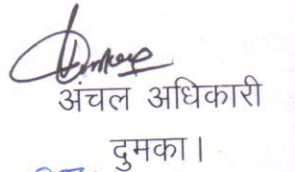 अंचल अधिकारी
दुमका।